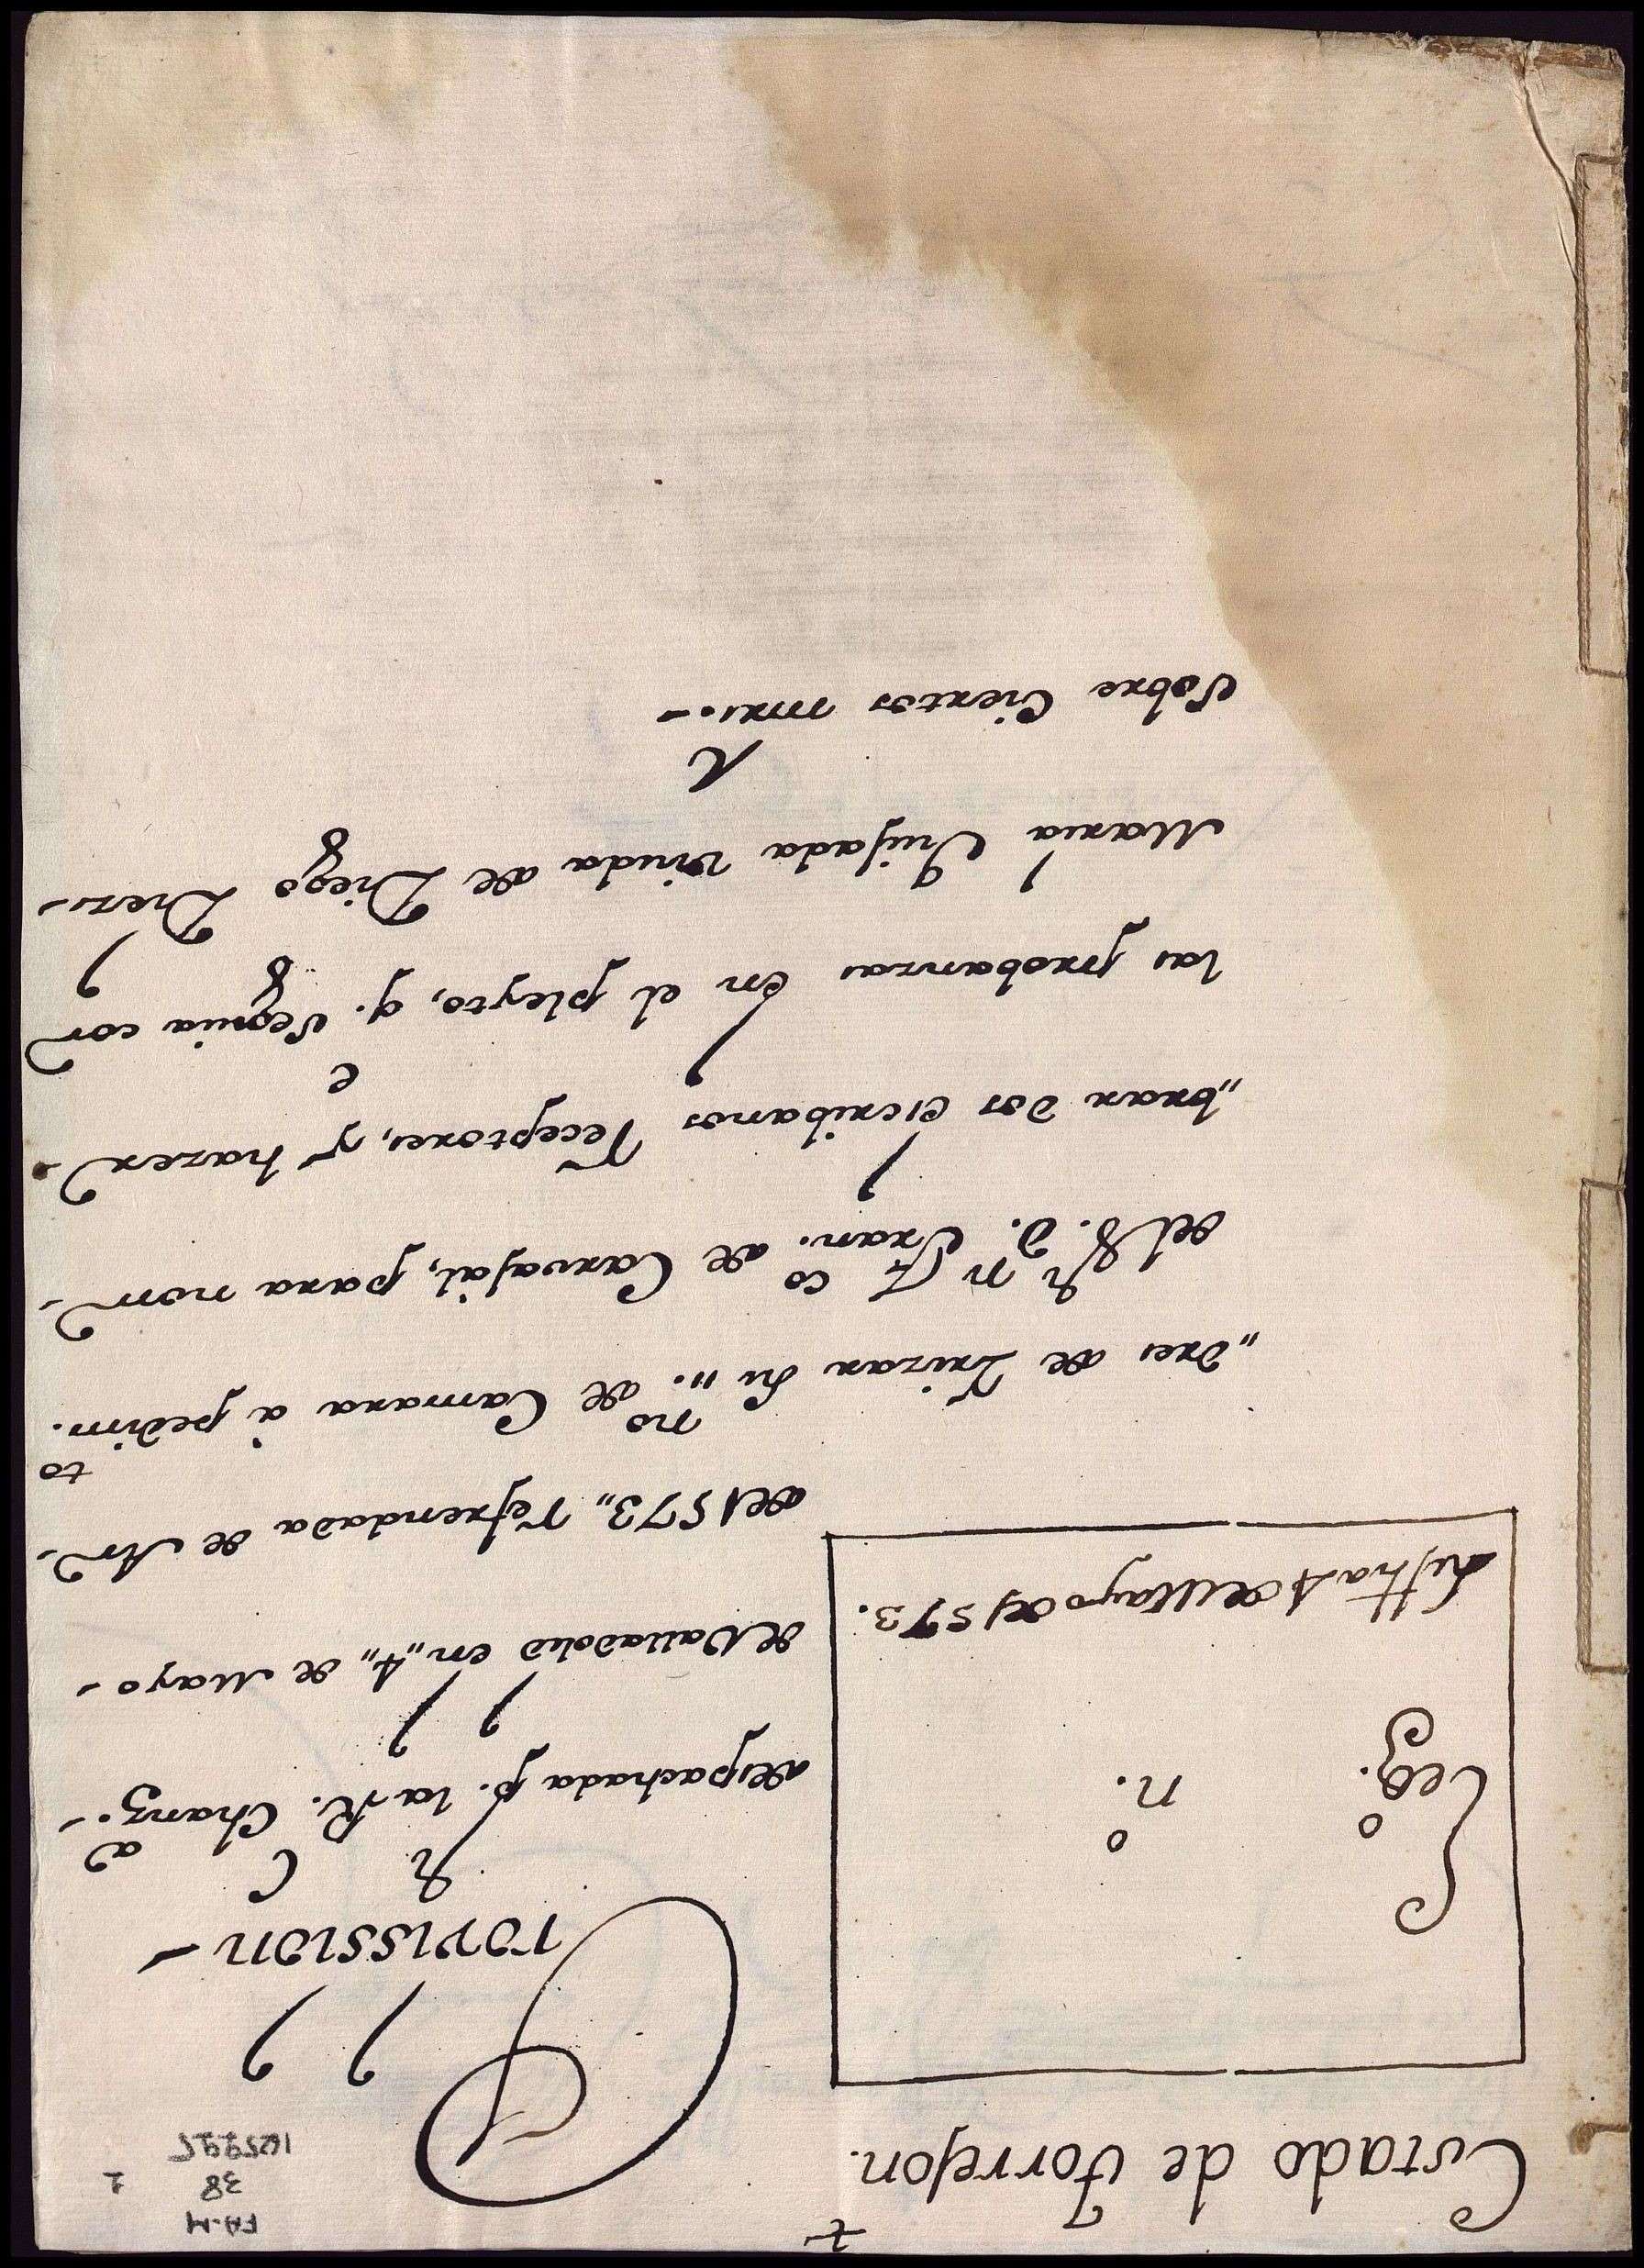 FA.M
38 1
Estado de Torrejon.
Leg.º n.º
Su fha 4 de Mayo de 1573.
Provission-
despachada p.r la R.l Chanz.a-
de Valladolid en „4„ de Mayo-
de 1573„ refrendada de An-
„dres de
no de Camara à pedim.to
del S.r D.n Fran.co de Carvajal, para nom-
„brar dos escribanos Receptores, y hazer-
las probanzas en el pleyto, q.e seguia con
Maria Quijada viuda de Diego
Sobre Ciertos mrs.-